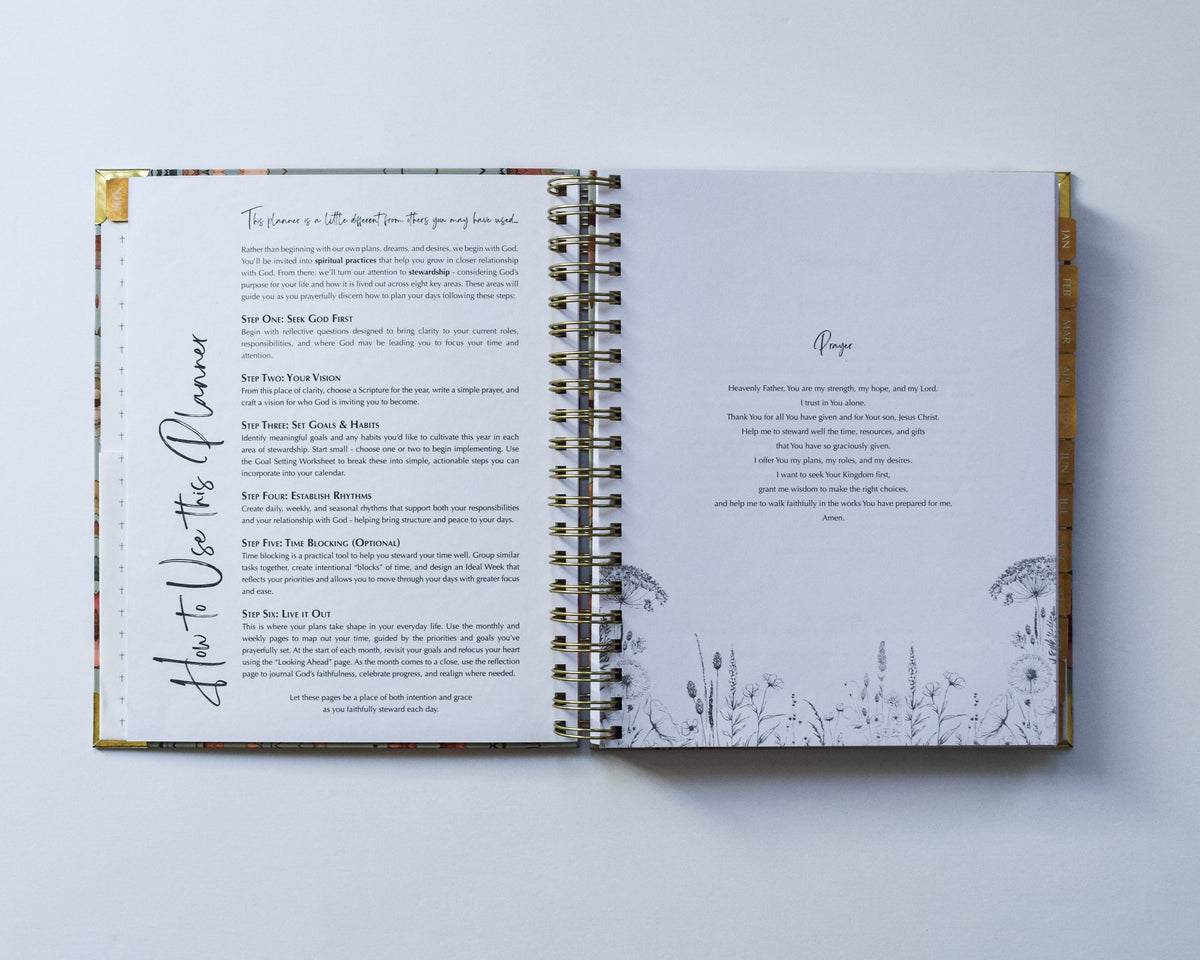 How to Use this Planner
This planner is a little different from others you may have used...
Rather than beginning with our own plans, dreams, and desires, we begin with God.
You'll be invited into spiritual practices that help you grow in closer relationship
with God. From there, we'll turn our attention to stewardship - considering God's
purpose for your life and how it is lived out across eight key areas. These areas will
guide you as you prayerfully discern how to plan your days following these steps:
Step One: Seek God First
Begin with reflective questions designed to bring clarity to your current roles,
responsibilities, and where God may be leading you to focus your time and
attention.
Step Two: Your Vision
From this place of clarity, choose a Scripture for the year, write a simple prayer, and
craft a vision for who God is inviting you to become.
Step Three: Set Goals & Habits
Identify meaningful goals and any habits you'd like to cultivate this year in each
area of stewardship. Start small - choose one or two to begin implementing. Use
the Goal Setting Worksheet to break these into simple, actionable steps you can
incorporate into your calendar.
Step Four: Establish Rhythms
Create daily, weekly, and seasonal rhythms that support both your responsibilities
and your relationship with God - helping bring structure and peace to your days.
Step Five: Time Blocking (Optional)
Time blocking is a practical tool to help you steward your time well. Group similar
tasks together, create intentional "blocks" of time, and design an Ideal Week that
reflects your priorities and allows you to move through your days with greater focus
and ease.
Step Six: Live it Out
This is where your plans take shape in your everyday life. Use the monthly and
weekly pages to map out your time, guided by the priorities and goals you've
prayerfully set. At the start of each month, revisit your goals and refocus your heart
using the "Looking Ahead" page. As the month comes to a close, use the reflection
page to journal God's faithfulness, celebrate progress, and realign where needed.
Let these pages be a place of both intention and grace
as you faithfully steward each day.
Prayer
Heavenly Father, You are my strength, my hope, and my Lord.
I trust in You alone.
Thank You for all You have given and for Your son, Jesus Christ.
Help me to steward well the time, resources, and gifts
that You have so graciously given.
I offer You my plans, my roles, and my desires.
I want to seek Your Kingdom first,
grant me wisdom to make the right choices,
and help me to walk faithfully in the works You have prepared for me,
Amen.
JAN
FEB
MAR
APR
JUN
JUL